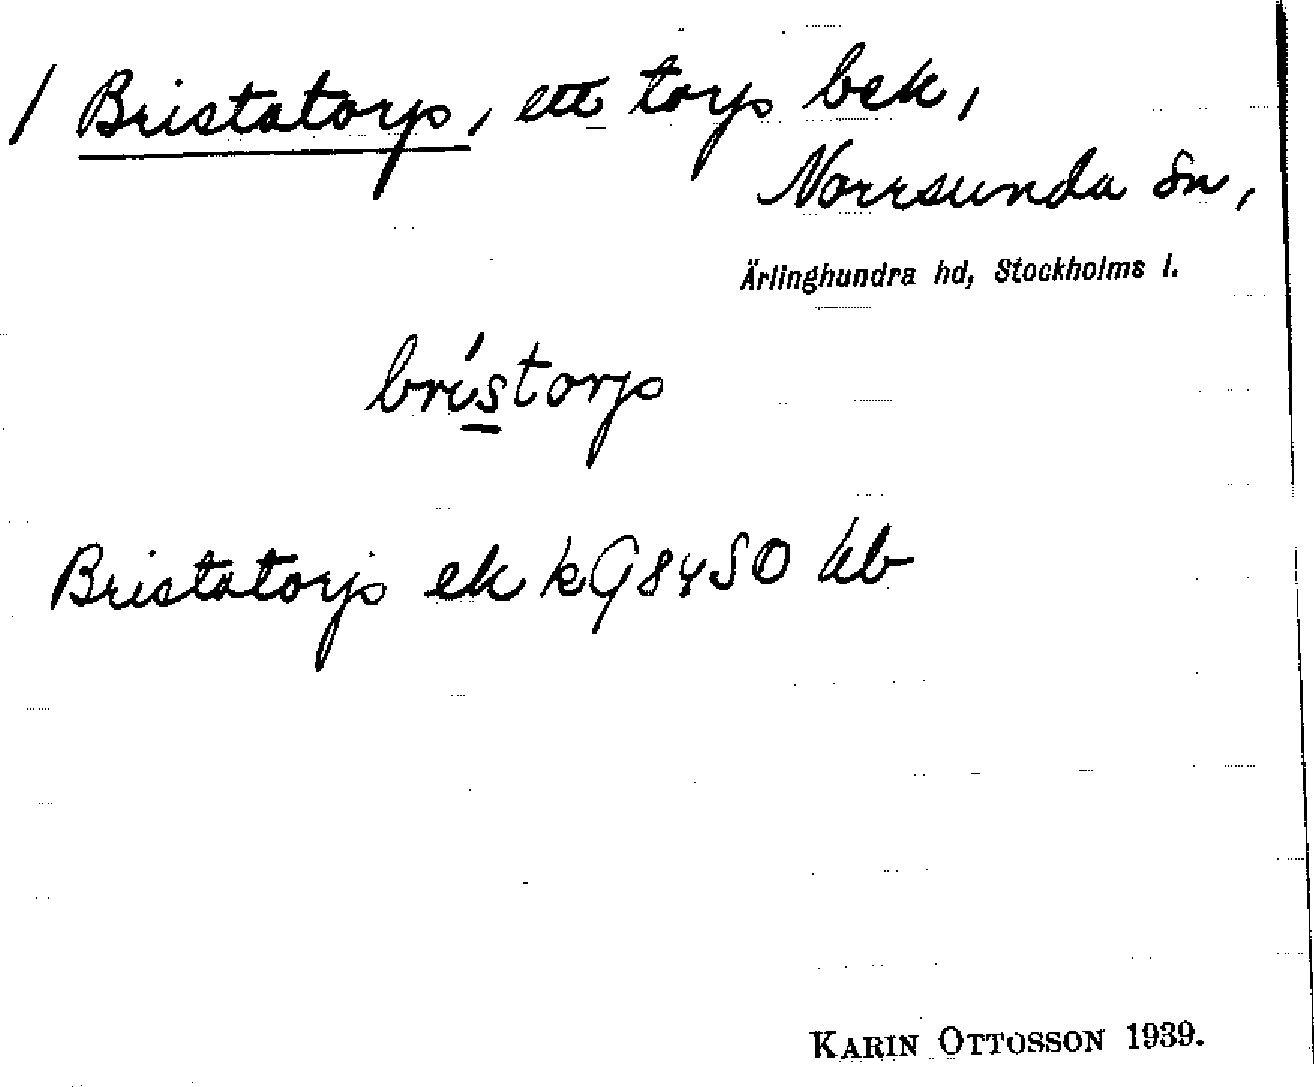 / Bristatorp, ett torp bek,
Norrsunda sn,
Ärlinghundra hd, Stockholms l.
brístorp
Bristatorp ek k 98450 kb
KARIN OTTOSSON 1939.